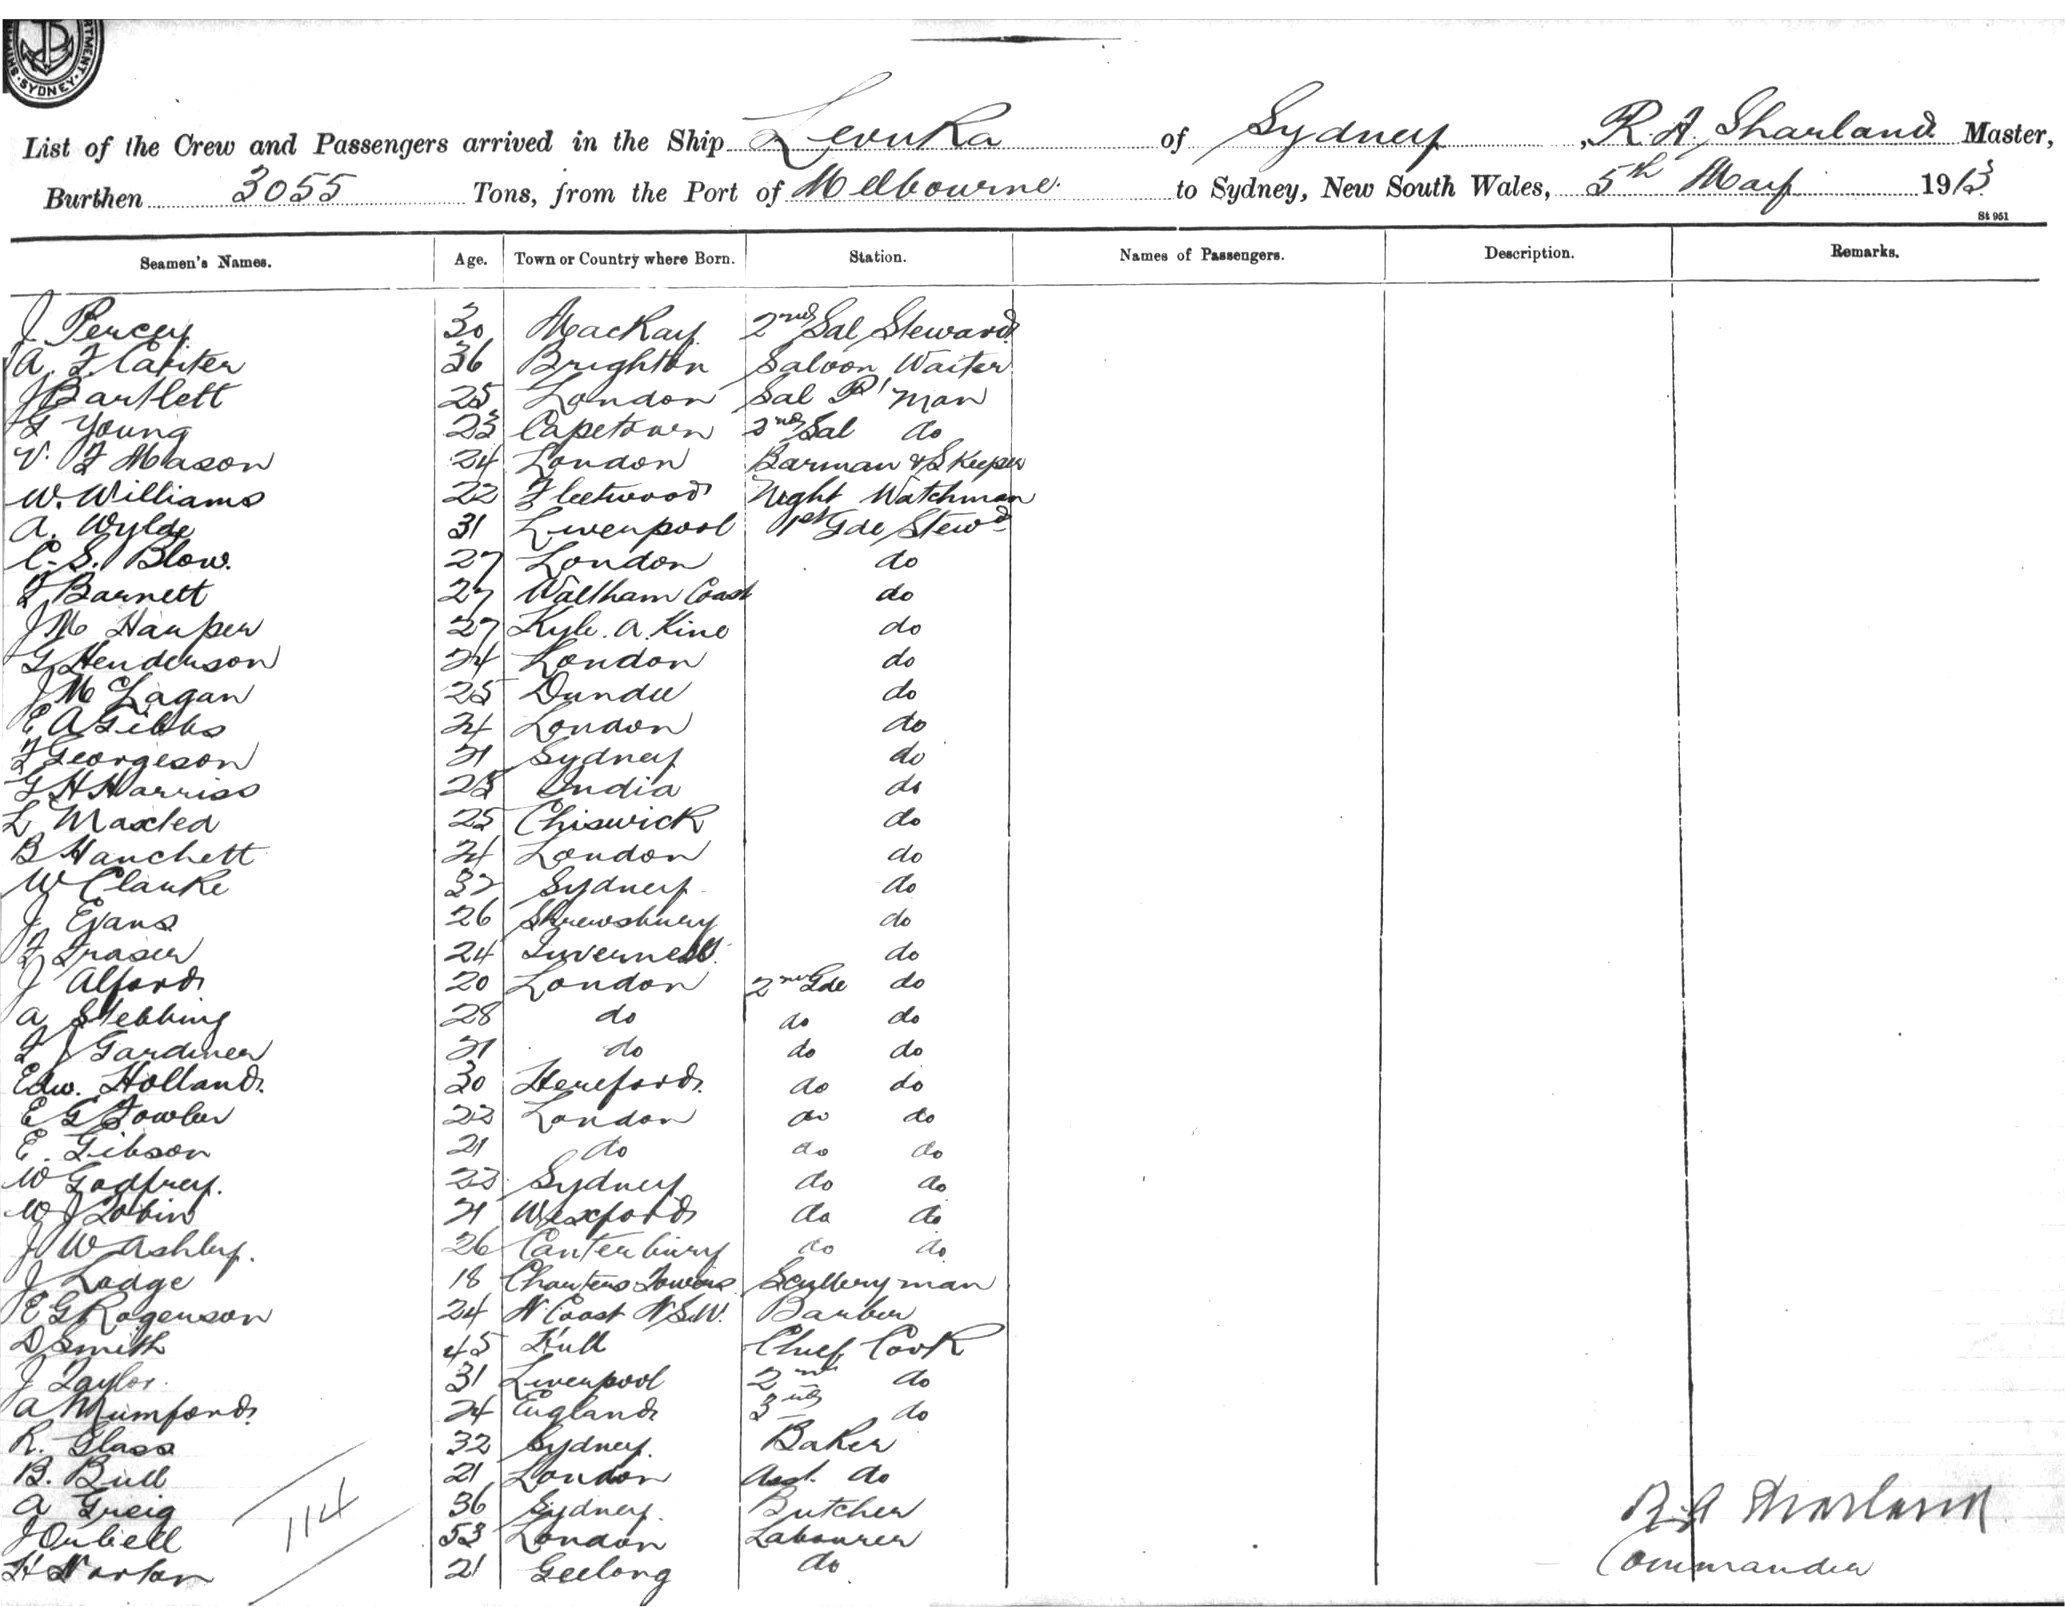 SYDNEY
List of the Crew and Passengers arrived in the Ship Levuka of Sydney, R. A. Sharland Master,
Burthen 3055 Tons, from the Port of Melbourne to Sydney, New South Wales, 5th May 1913
St 951
Seamen's Names. Age. Town or Country where Born. Station. Names of Passengers. Description. Remarks.
J Percy 30 Mackay 2nd Sal Steward
A. F Carter 36 Brighton Saloon Waiter
J Bartlett 25 London Sal P' man
G Young 23 Capetown 2nd Sal do
V. F Mason 24 London Barman & S Keeper
W. Williams 22 Fleetwood Night Watchman
A. Wylde 31 Liverpool 1st Gde Stewd
C. S. Blow. 27 London do
F Barnett 27 Waltham Coast do
J M Harper 27 Kyle. A. Kine do
G Henderson 24 London do
J McLagan 25 Dundee do
E A Gibbs 24 London do
F Georgeson 21 Sydney do
G H Harriss 25 India do
L Maxted 25 Chiswick do
B Hanchett 24 London do
W Clarke 37 Sydney do
J Evans 26 Shrewsbury do
F Fraser 24 Inverness do
J Alford 20 London 2nd Gde do
A Stebbing 28 do do do
F J Gardiner 21 do do do
Edw. Holland 30 Hereford do do
E G Fowler 22 London do do
E. Gibson 21 do do do
W Godfrey. 22 Sydney do do
W J Tobin 21 Wexford do do
J W Ashby. 26 Canterbury do do
J Lodge 18 Charters Towers Scullery man
E G Rogerson 24 N Coast N.S.W. Barber
D Smith 45 Hull Chief Cook
J Taylor. 31 Liverpool 2nd do
A Mumford 24 England 3rd do
R. Glass 32 Sydney. Baker
B. Bull 21 London Asst. do
A Greig 36 Sydney. Butcher
J Orbell 53 London Labourer
H Norton 21 Geelong do
114
R A Sharland
Commander